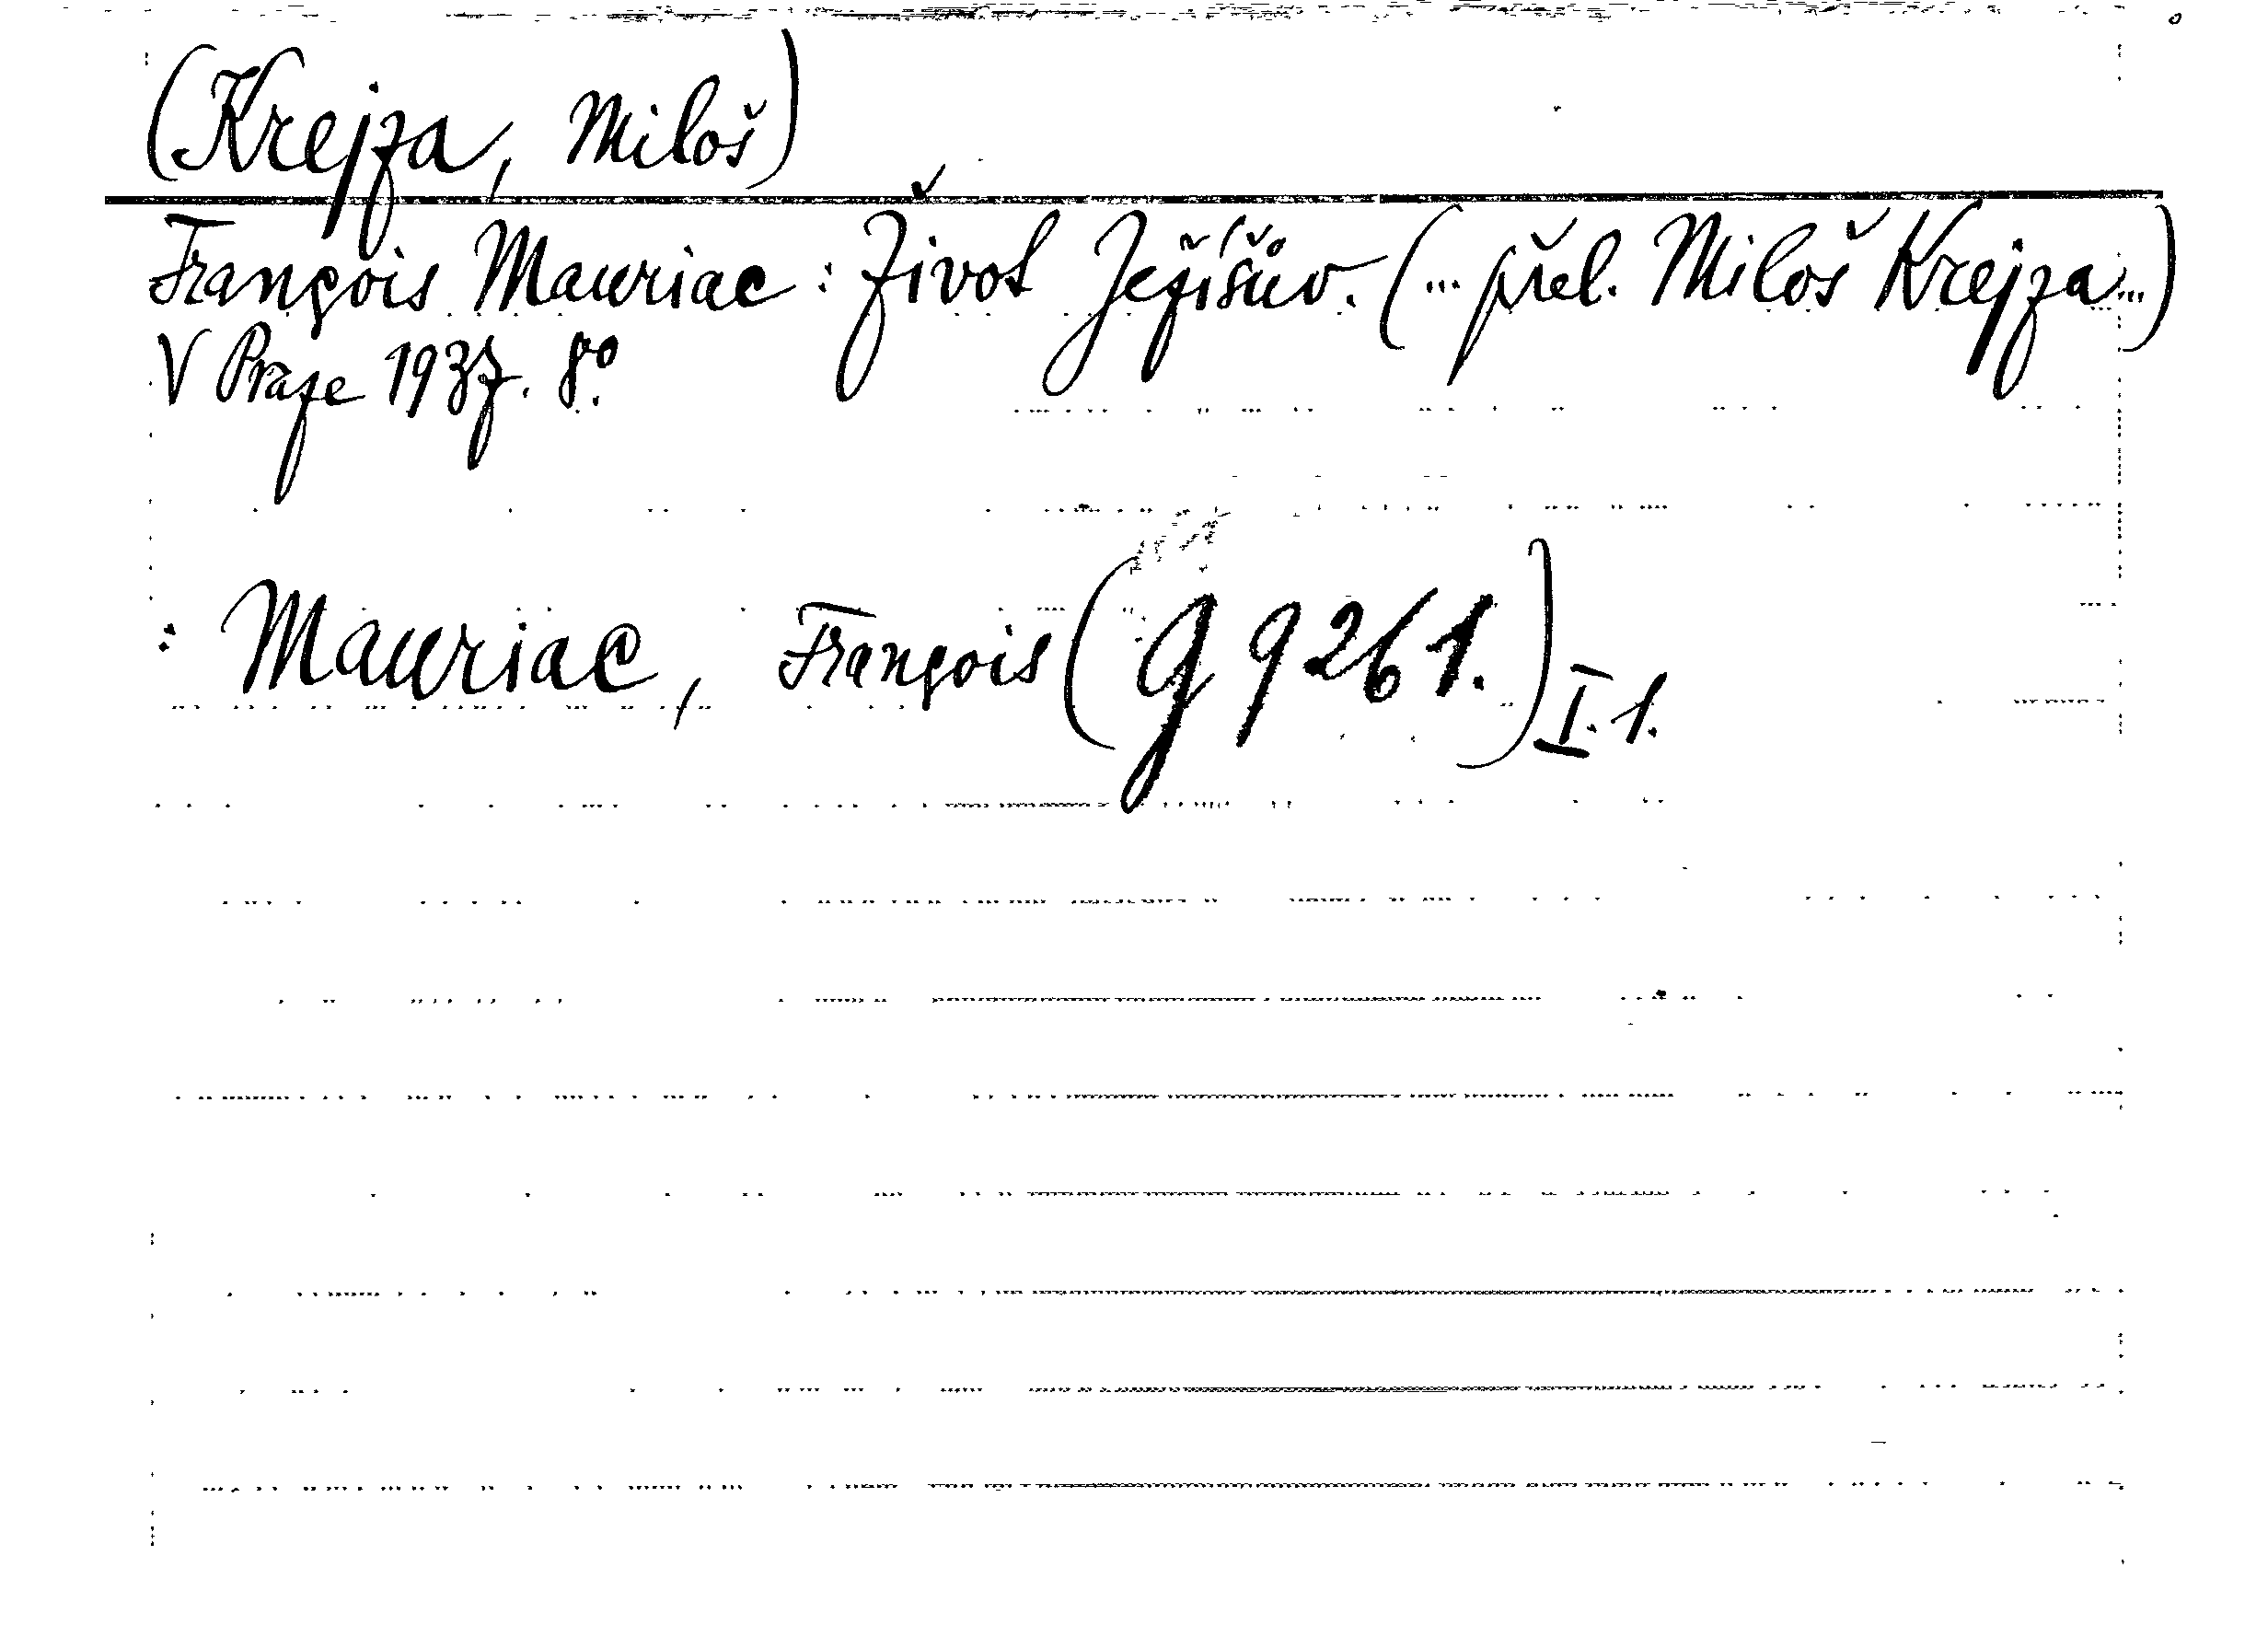 (Krejza, Miloš)
François Mauriac: Život Ježíšův. (... přel. Miloš Krejza...)
V Praze 1937. 8°.
: Mauriac, François (g 9261.) I. 1.